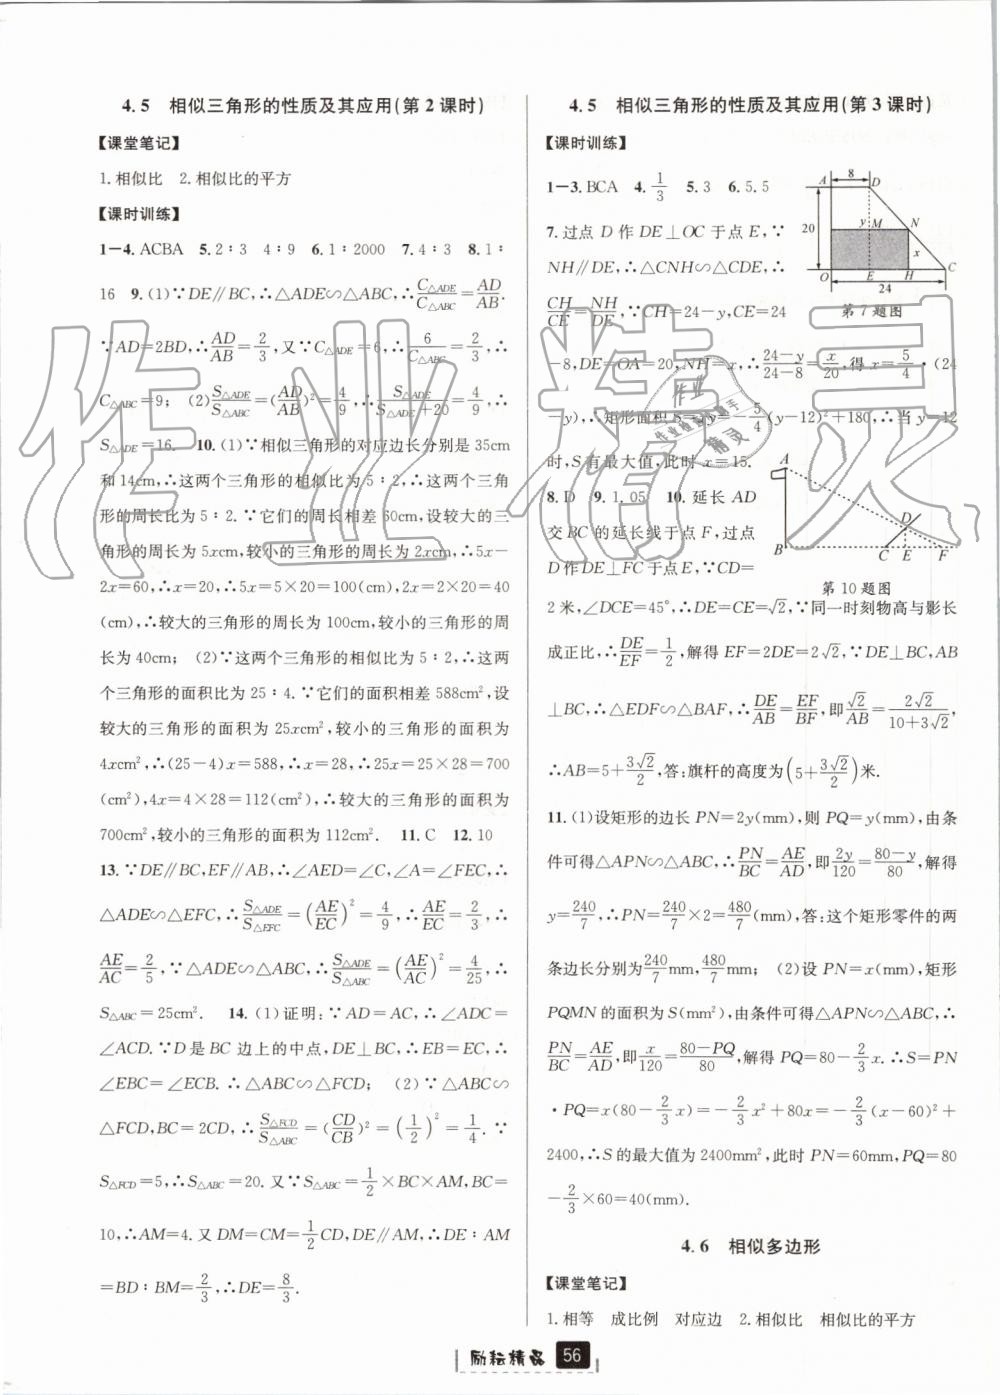 4.5 相似三角形的性质及其应用(第2课时)
【课堂笔记】
1.相似比 2.相似比的平方
【课时训练】
1—4.ACBA 5.2∶3 4∶9 6.1∶2000 7.4∶3 8.1∶
16 9.(1)∵DE∥BC,∴△ADE∽△ABC,∴C△ADE/C△ABC=AD/AB.
∵AD=2BD,∴AD/AB=2/3,又∵C△ADE=6,∴6/C△ABC=2/3,∴
C△ABC=9; (2)S△ADE/S△ABC=(AD/AB)²=4/9,∴S△ADE/(S△ADE+20)=4/9,∴
S△ADE=16. 10.(1)∵相似三角形的对应边长分别是35cm
和14cm,∴这两个三角形的相似比为5∶2,∴这两个三角
形的周长比为5∶2.∵它们的周长相差60cm,设较大的三
角形的周长为5xcm,较小的三角形的周长为2xcm,∴5x-
2x=60,∴x=20,∴5x=5×20=100(cm),2x=2×20=40
(cm),∴较大的三角形的周长为100cm,较小的三角形的周
长为40cm; (2)∵这两个三角形的相似比为5∶2,∴这两
个三角形的面积比为25∶4.∵它们的面积相差588cm²,设
较大的三角形的面积为25xcm²,较小的三角形的面积为
4xcm²,∴(25-4)x=588,∴x=28,∴25x=25×28=700
(cm²),4x=4×28=112(cm²),∴较大的三角形的面积为
700cm²,较小的三角形的面积为112cm². 11.C 12.10
13.∵DE∥BC,EF∥AB,∴∠AED=∠C,∠A=∠FEC,∴
△ADE∽△EFC,∴S△ADE/S△EFC=(AE/EC)²=4/9,∴AE/EC=2/3,∴
AE/AC=2/5,∵△ADE∽△ABC,∴S△ADE/S△ABC=(AE/AC)²=4/25,∴
S△ABC=25cm². 14.(1)证明:∵AD=AC,∴∠ADC=
∠ACD.∵D是BC边上的中点,DE⊥BC,∴EB=EC,∴
∠EBC=∠ECB.∴△ABC∽△FCD; (2)∵△ABC∽
△FCD,BC=2CD,∴S△FCD/S△ABC=(CD/CB)²=(1/2)²=1/4.∵
S△FCD=5,∴S△ABC=20.又∵S△ABC=1/2×BC×AM,BC=
10,∴AM=4.又DM=CM=1/2CD,DE∥AM,∴DE∶AM
=BD∶BM=2/3,∴DE=8/3.
4.5 相似三角形的性质及其应用(第3课时)
【课时训练】
1—3.BCA 4.1/3 5.3 6.5.5
7.过点D作DE⊥OC于点E,∵
NH∥DE,∴△CNH∽△CDE,∴
CH/CE=NH/DE,∵CH=24-y,CE=24
A 8 D
20 y M N
x
O E H C
24
第7题图
-8,DE=OA=20,NH=x,∴(24-y)/(24-8)=x/20,得x=5/4·(24
-y),∴矩形面积S=xy=-5/4(y-12)²+180,∴当y=12
时,S有最大值,此时x=15.
8.D 9.1.05 10.延长AD
交BC的延长线于点F,过点
D作DE⊥FC于点E,∵CD=
A
D
B C E F
第10题图
2米,∠DCE=45°,∴DE=CE=√2,∵同一时刻物高与影长
成正比,∴DE/EF=1/2,解得EF=2DE=2√2,∵DE⊥BC,AB
⊥BC,∴△EDF∽△BAF,∴DE/AB=EF/BF,即√2/AB=2√2/(10+3√2),
∴AB=5+3√2/2,答:旗杆的高度为(5+3√2/2)米.
11.(1)设矩形的边长PN=2y(mm),则PQ=y(mm),由条
件可得△APN∽△ABC,∴PN/BC=AE/AD,即2y/120=(80-y)/80,解得
y=240/7,∴PN=240/7×2=480/7(mm),答:这个矩形零件的两
条边长分别为240/7mm,480/7mm; (2)设PN=x(mm),矩形
PQMN的面积为S(mm²),由条件可得△APN∽△ABC,∴
PN/BC=AE/AD,即x/120=(80-PQ)/80,解得PQ=80-2/3x.∴S=PN
·PQ=x(80-2/3x)=-2/3x²+80x=-2/3(x-60)²+
2400,∴S的最大值为2400mm²,此时PN=60mm,PQ=80
-2/3×60=40(mm).
4.6 相似多边形
【课堂笔记】
1.相等 成比例 对应边 2.相似比 相似比的平方
励耘精品 56
作业精灵